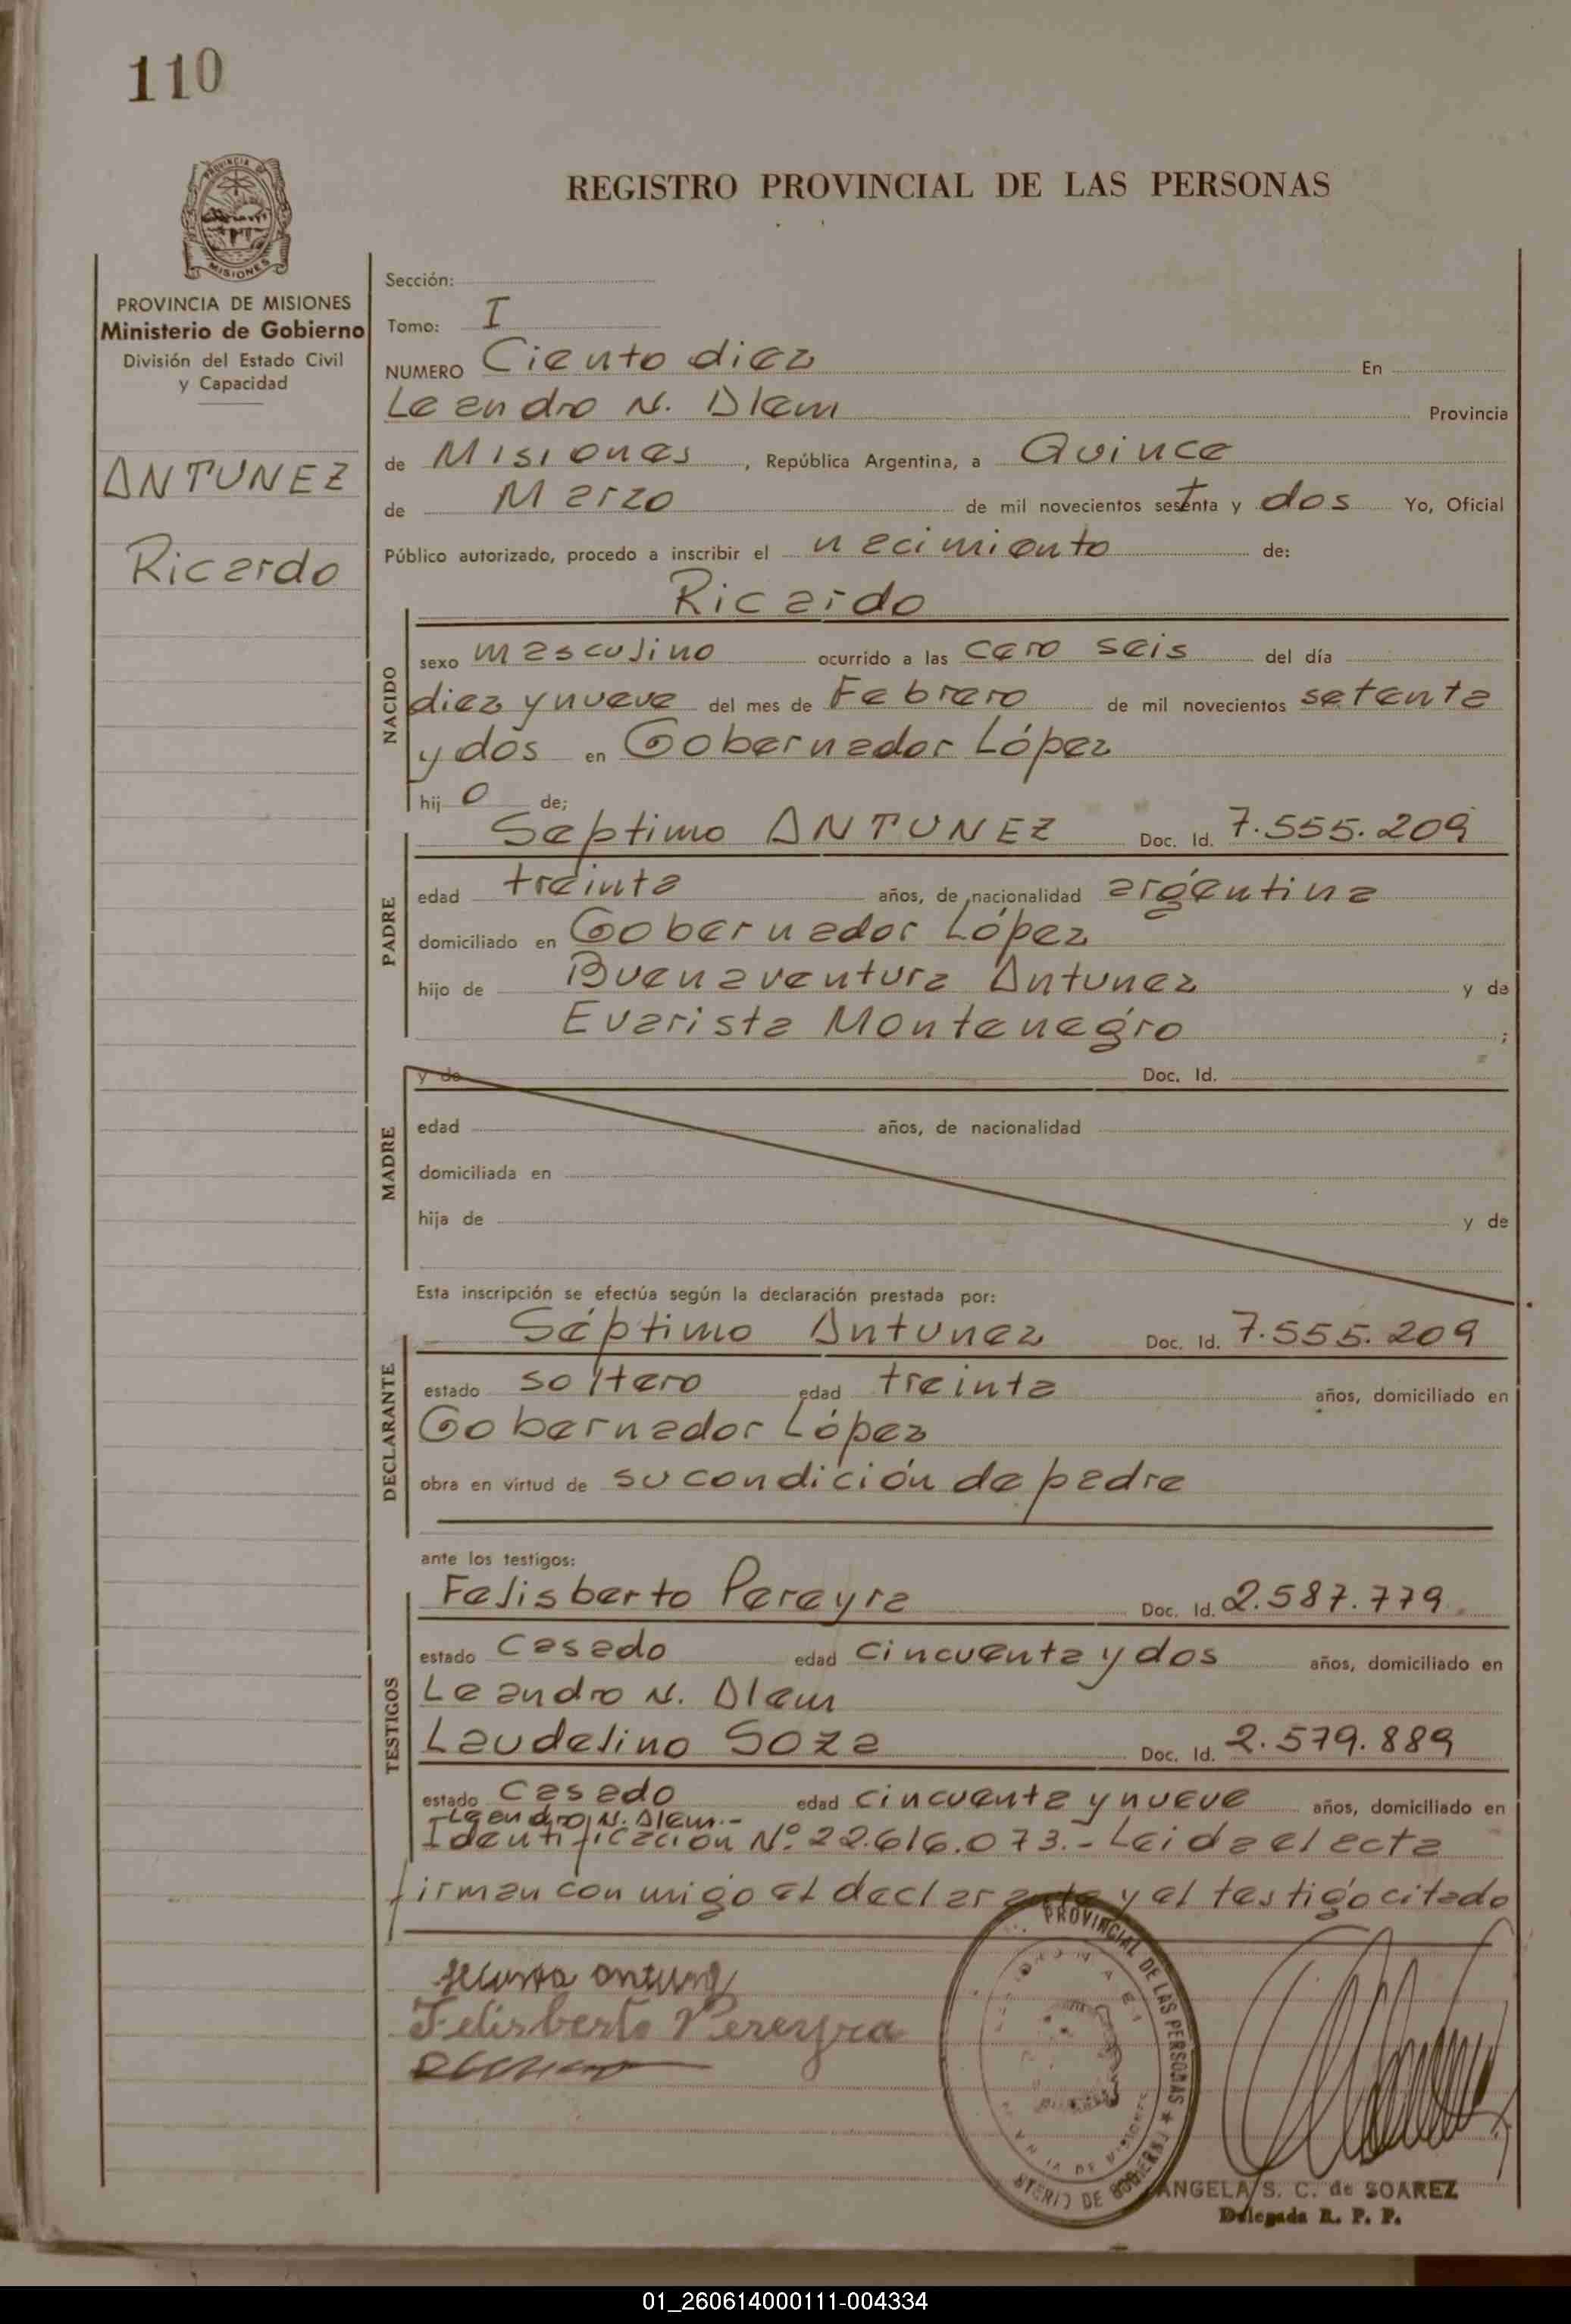 110
PROVINCIA DE
MISIONES
REGISTRO PROVINCIAL DE LAS PERSONAS
PROVINCIA DE MISIONES
Ministerio de Gobierno
División del Estado Civil
y Capacidad
ANTUNEZ
Ricardo
Sección:
Tomo: I
NUMERO Ciento diez En
Leandro N. Alem Provincia
de Misiones, República Argentina, a Quince
de Marzo de mil novecientos setenta y dos Yo, Oficial
Público autorizado, procedo a inscribir el nacimiento de:
Ricardo
NACIDO
sexo masculino ocurrido a las cero seis del día
diez y nueve del mes de Febrero de mil novecientos setenta
y dos en Gobernador López
hijo de;
PADRE
Septimo ANTUNEZ Doc. Id. 7.555.209
edad treinta años, de nacionalidad argentina
domiciliado en Gobernador López
hijo de Buenaventura Antunez y de
Evarista Montenegro ;
MADRE
y de Doc. Id.
edad años, de nacionalidad
domiciliada en
hija de y de
Esta inscripción se efectúa según la declaración prestada por:
DECLARANTE
Séptimo Antunez Doc. Id. 7.555.209
estado soltero edad treinta años, domiciliado en
Gobernador López
obra en virtud de su condición de padre
ante los testigos:
TESTIGOS
Felisberto Pereyra Doc. Id. 2.587.779
estado casado edad cincuenta y dos años, domiciliado en
Leandro N. Alem
Laudelino Soza Doc. Id. 2.579.889
estado casado edad cincuenta y nueve años, domiciliado en
Leandro N. Alem.-
Identificación Nº 22.616.073.- Leida el acta
firman conmigo el declarante y el testigo citado
Felisberto Pereyra
PROVINCIAL DE LAS PERSONAS
DE GOBIERNO
DE MISIONES
ANGELA S. C. de SOAREZ
Delegada R. P. P.
01_260614000111-004334